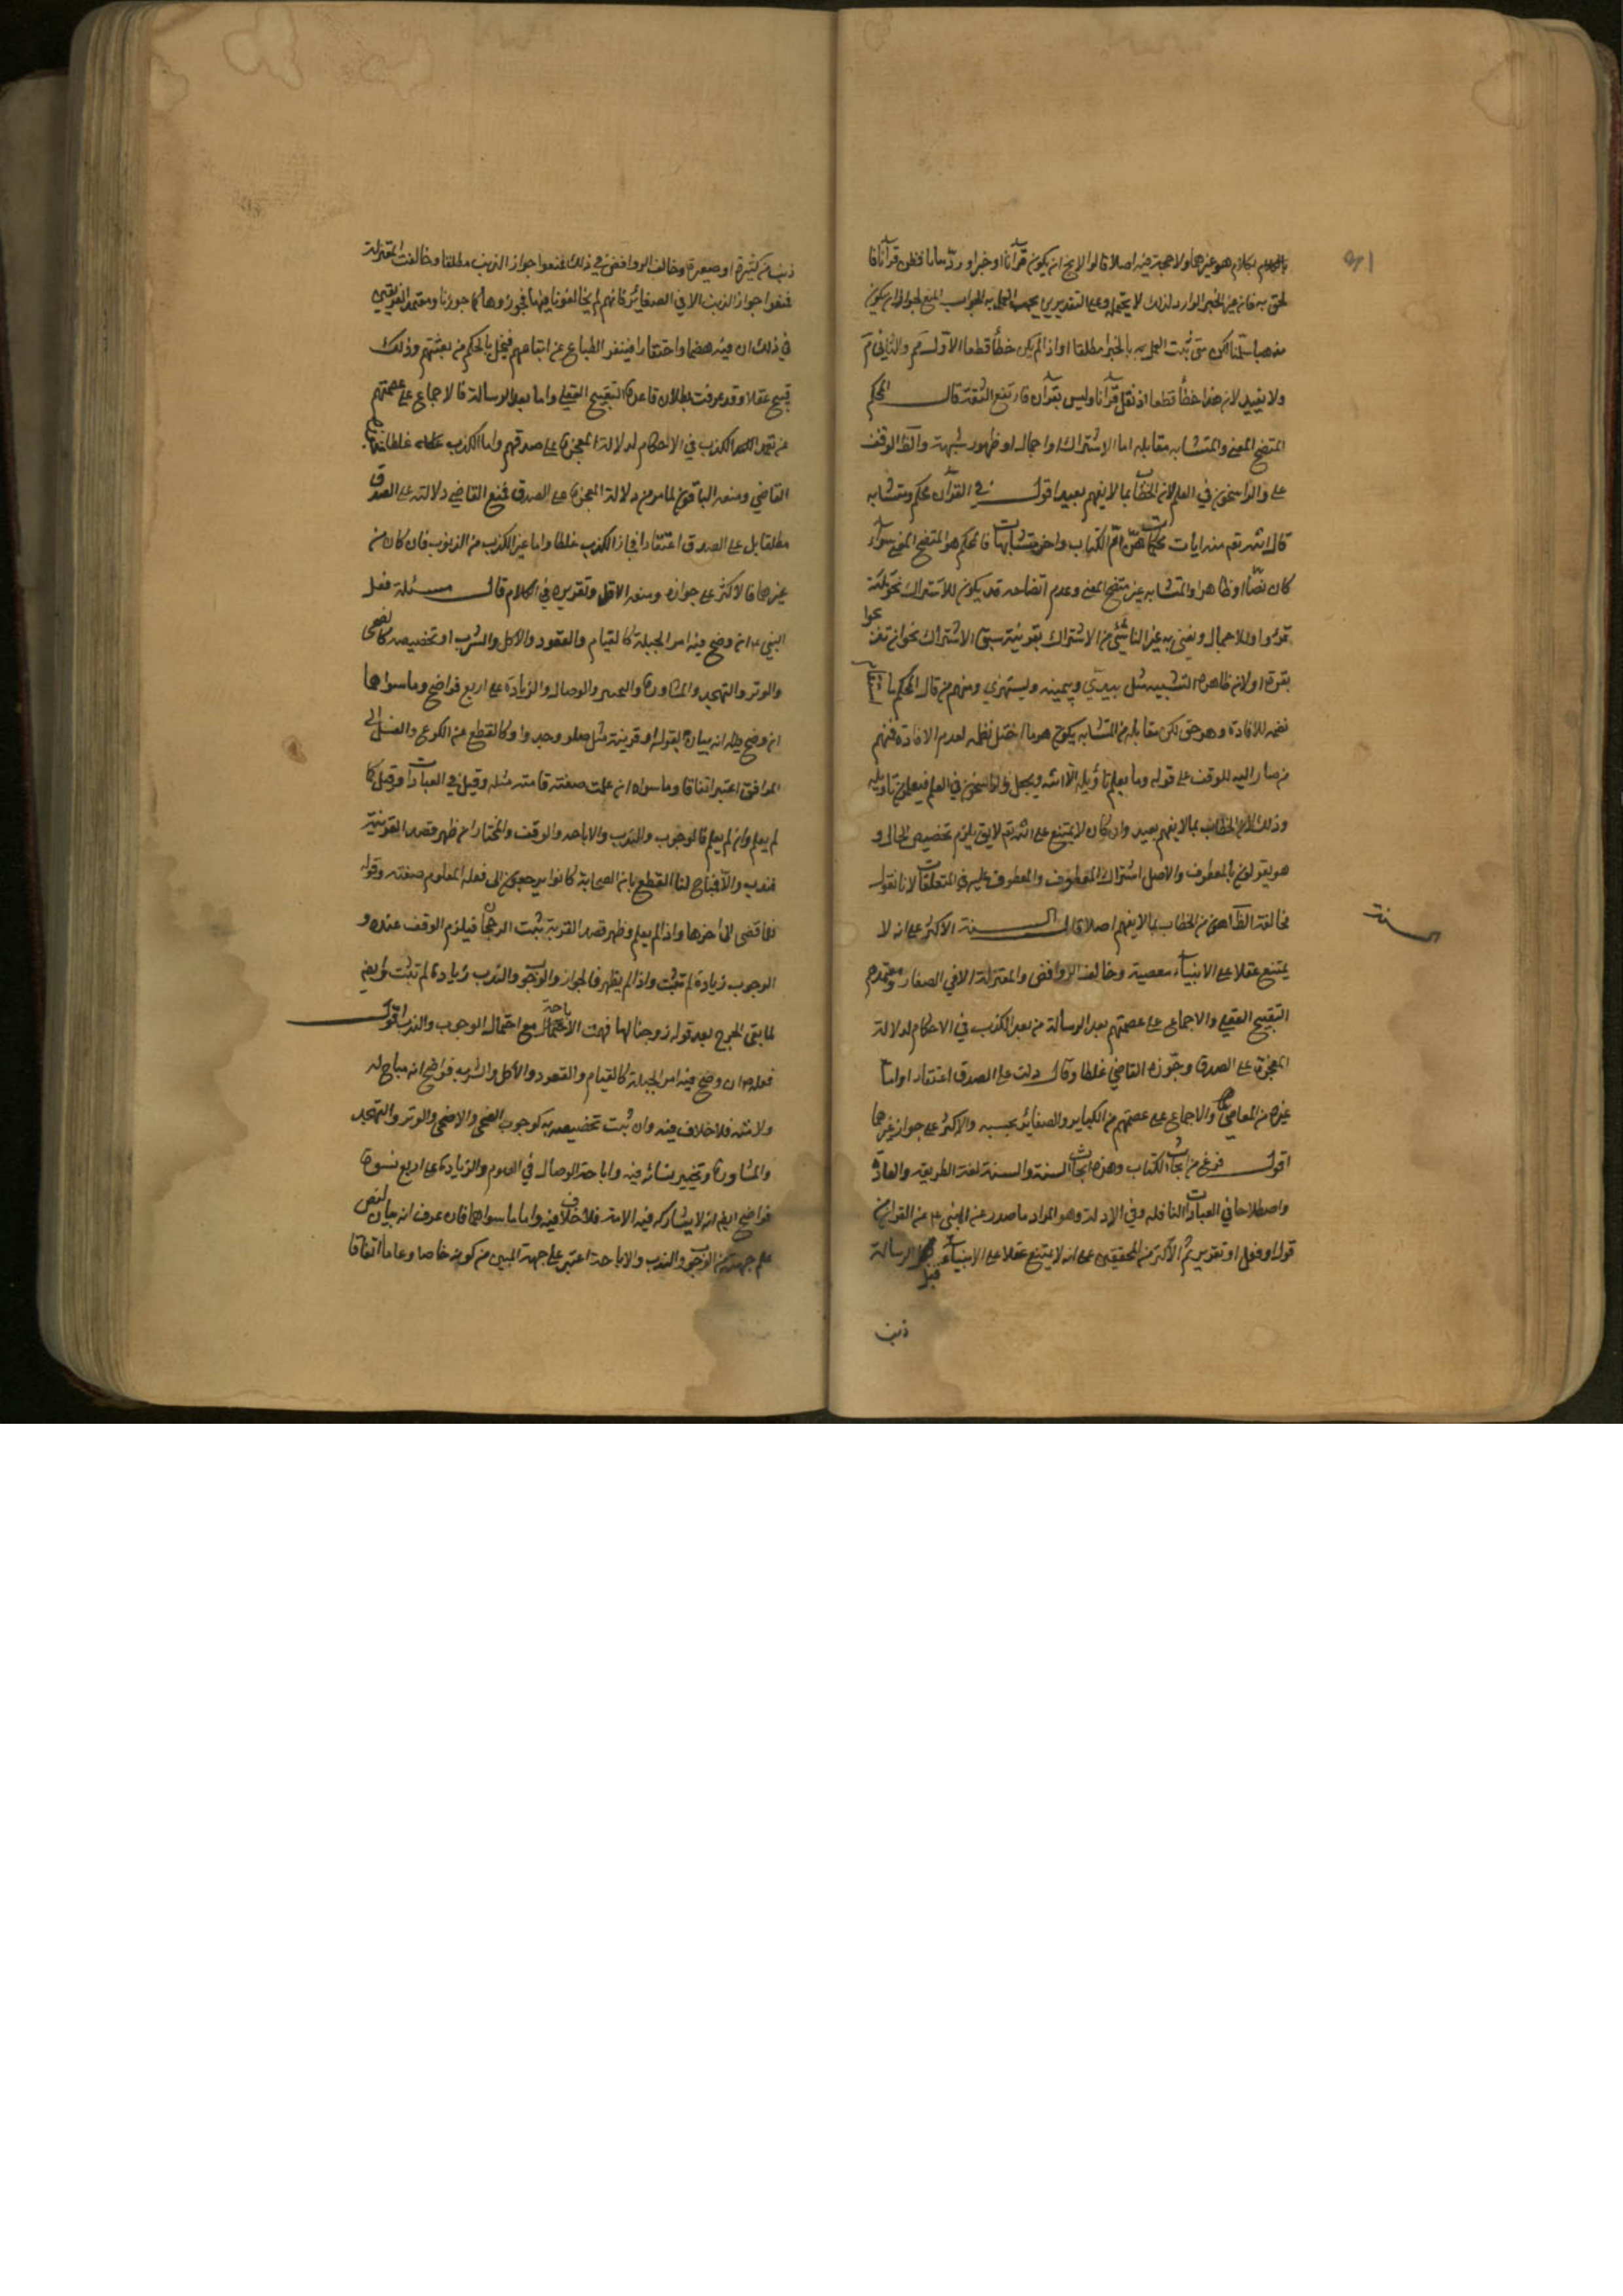 بكلام هو غيرها ولا حجة فيه اصلا قالوا لا يخ ان يكون قرآنا او خبرا ورد بيانا فظن قرآنا فا
لحق به فانه غير الخبر الوارد لذلك لا يحتمله وعلى التقديرين يجب العمل به الجواب المنع لجواز ان يكون
مذهبا سلمنا لكن متى ثبت العمل به بالخبر مطلقا او اذا لم يكن خطأ قطعا الاول مم والثاني مم
ولا يفيد لانه هذا خطأ قطعا اذ نقل قرآنا وليس بقرآن فارتفع الثقة قال المحكم
المتضح المعنى والمتشابه مقابله اما لاشتراك او اجمال او ظهور شبهة والظ الوقف
على والراسخون في العلم لان الخطاب بما لا يفهم بعيد اقول في القرآن محكم ومتشابه
قال الله تع منه ايات محكمات هن ام الكتاب واخر متشابهات فالمحكم هو المتضح المعنى سواء
كان نصا او ظاهرا والمتشابه غير متضح المعنى وعدم اتضاحه قد يكون للاشتراك نحو ثلثة
قروء او للاجمال ونعني به غير الناشئ من الاشتراك بقرينة سبق الاشتراك نحو ان تذبحوا
بقرة او لان ظاهره التشبيه مثل بيدي وبيمينه ويستهزئ ومنهم من قال المحكم ما
نظمه للافادة وهو حق لكن مقابله من المتشابه يكون هو ما اختل نظمه لعدم الافادة فمنهم
من صار اليه للوقف على قوله وما يعلم تأويله الا الله ويجعل والراسخون في العلم فيعلمون تأويله
وذلك لان الخطاب بما لا يفهم بعيد وان كان لا يمتنع على الله تع لا يق يلزم تخصيص الحال و
هو يقولون بالمعطوف والاصل اشتراك المعطوف والمعطوف عليه في المتعلقات لانا نقول
مخالفة الظاهر اهون من الخطاب بما لا يفهم اصلا قال السنة الاكثر على انه لا
يمتنع عقلا على الانبياء معصية وخالف الروافض والمعتزلة الا في الصغائر ومعتمدهم
التقبيح العقلي والاجماع على عصمتهم بعد الرسالة من تعمد الكذب في الاحكام لدلالة
المعجزة على الصدق وجوزه القاضي غلطا وقال دلت على الصدق اعتقادا واما
غيره من المعاصي فالاجماع على عصمتهم من الكبائر والصغائر الخسيسة والاكثر على جواز غيرهما
اقول فرغ من ابحاث الكتاب وهذه ابحاث السنة والسنة لغة الطريقة والعادة
واصطلاحا في العبادات النافلة وفي الادلة وهو المراد ما صدر عن النبي ع م عن القرآن
قول او فعل او تقرير ثم الاكثر من المحققين على انه لا يمتنع عقلا على الانبياء قبل الرسالة
ذنب
السنة
ذنب من كبيرة او صغيرة وخالف الروافض في ذلك فمنعوا جواز الذنب مطلقا وخالفت المعتزلة
فمنعوا جواز الذنب الا في الصغائر فانهم لم يخالفونا فيها فجوزوها كما جوزنا ومعتمد الفريقين
في ذلك ان فيه هضما واحتقارا فينفر الطباع عن اتباعهم فيخل بالحكمة من بعثتهم وذلك
قبيح عقلا وقد عرفت بطلان قاعدة التقبيح العقلي واما بعد الرسالة فالاجماع على عصمتهم
عن تعمد الكذب في الاحكام لدلالة المعجزة على صدقهم واما الكذب غلطا فجوزه
القاضي ومنعه الباقون لما مر من دلالة المعجزة على الصدق فمنع القاضي دلالته على الصدق
مطلقا بل على الصدق اعتقادا فجاز الكذب غلطا واما غير الكذب من الذنوب فان كان من
غيرها فالاكثر على جوازه ومنعه الاقل وتقريره في الكلام قال مسئلة فعل
النبي ع م ان وضح فيه امر الجبلة كالقيام والقعود والاكل والشرب او تخصيصه كالضحى
والوتر والتهجد والمشاورة والتخيير والوصال والزيادة على اربع فواضح وما سواهما
ان وضح انه بيان بقول او قرينة مثل صلوا وخذوا وكالقطع من الكوع والغسل الى
المرافق اعتبر اتفاقا وما سواه ان علمت صفته فامته مثله وقيل في العبادات وقيل كما
لم يعلم وان لم يعلم فالوجوب والندب والاباحة والوقف والمختار ان ظهر قصد القربة
فندب والا فمباح لنا القطع بان الصحابة كانوا يرجعون الى فعله المعلوم صفته وقوله
فلما قضى الى اخرها واذا لم يعلم وظهر قصد القربة ثبت الرجحان فيلزم الوقف عنده و
الوجوب زيادة لم تثبت واذا لم يظهر فالجواز والوجوب والندب زيادة لم تثبت وايضا
لما نفى الحرج بعد قوله زوجناكها فهمت الاباحة مع احتمال الوجوب والندب اقول
فعله ع ان وضح فيه امر الجبلة كالقيام والقعود والاكل والشرب فواضح انه مباح له
ولامته فلا خلاف فيه وان ثبت تخصيصه به كوجوب الضحى والاضحى والوتر والتهجد
والمشاورة وتخيير نسائه فيه واباحة الوصال في الصوم والزيادة على اربع نسوة
فواضح ايضا انه لا يشاركه فيه الامة فلا خلاف فيه واما ما سواهما فان عرف انه بيان لنص
علم جهته من الوجوب والندب والاباحة اعتبر على جهة المبين من كونه خاصا وعاما اتفاقا